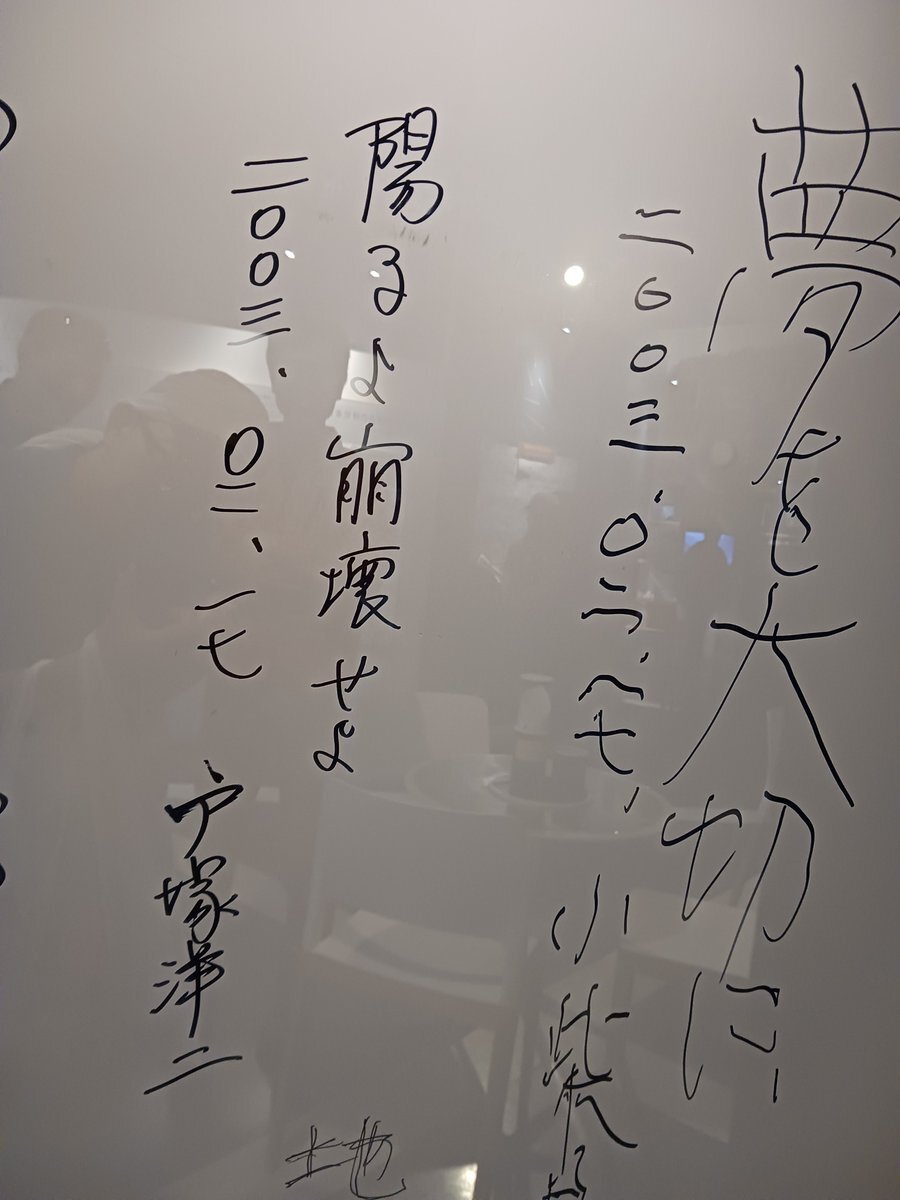 夢を大切に
二〇〇三、〇二、一七、 小柴
陽子よ崩壊せよ
二〇〇三.〇二、一七
戸塚洋二
地